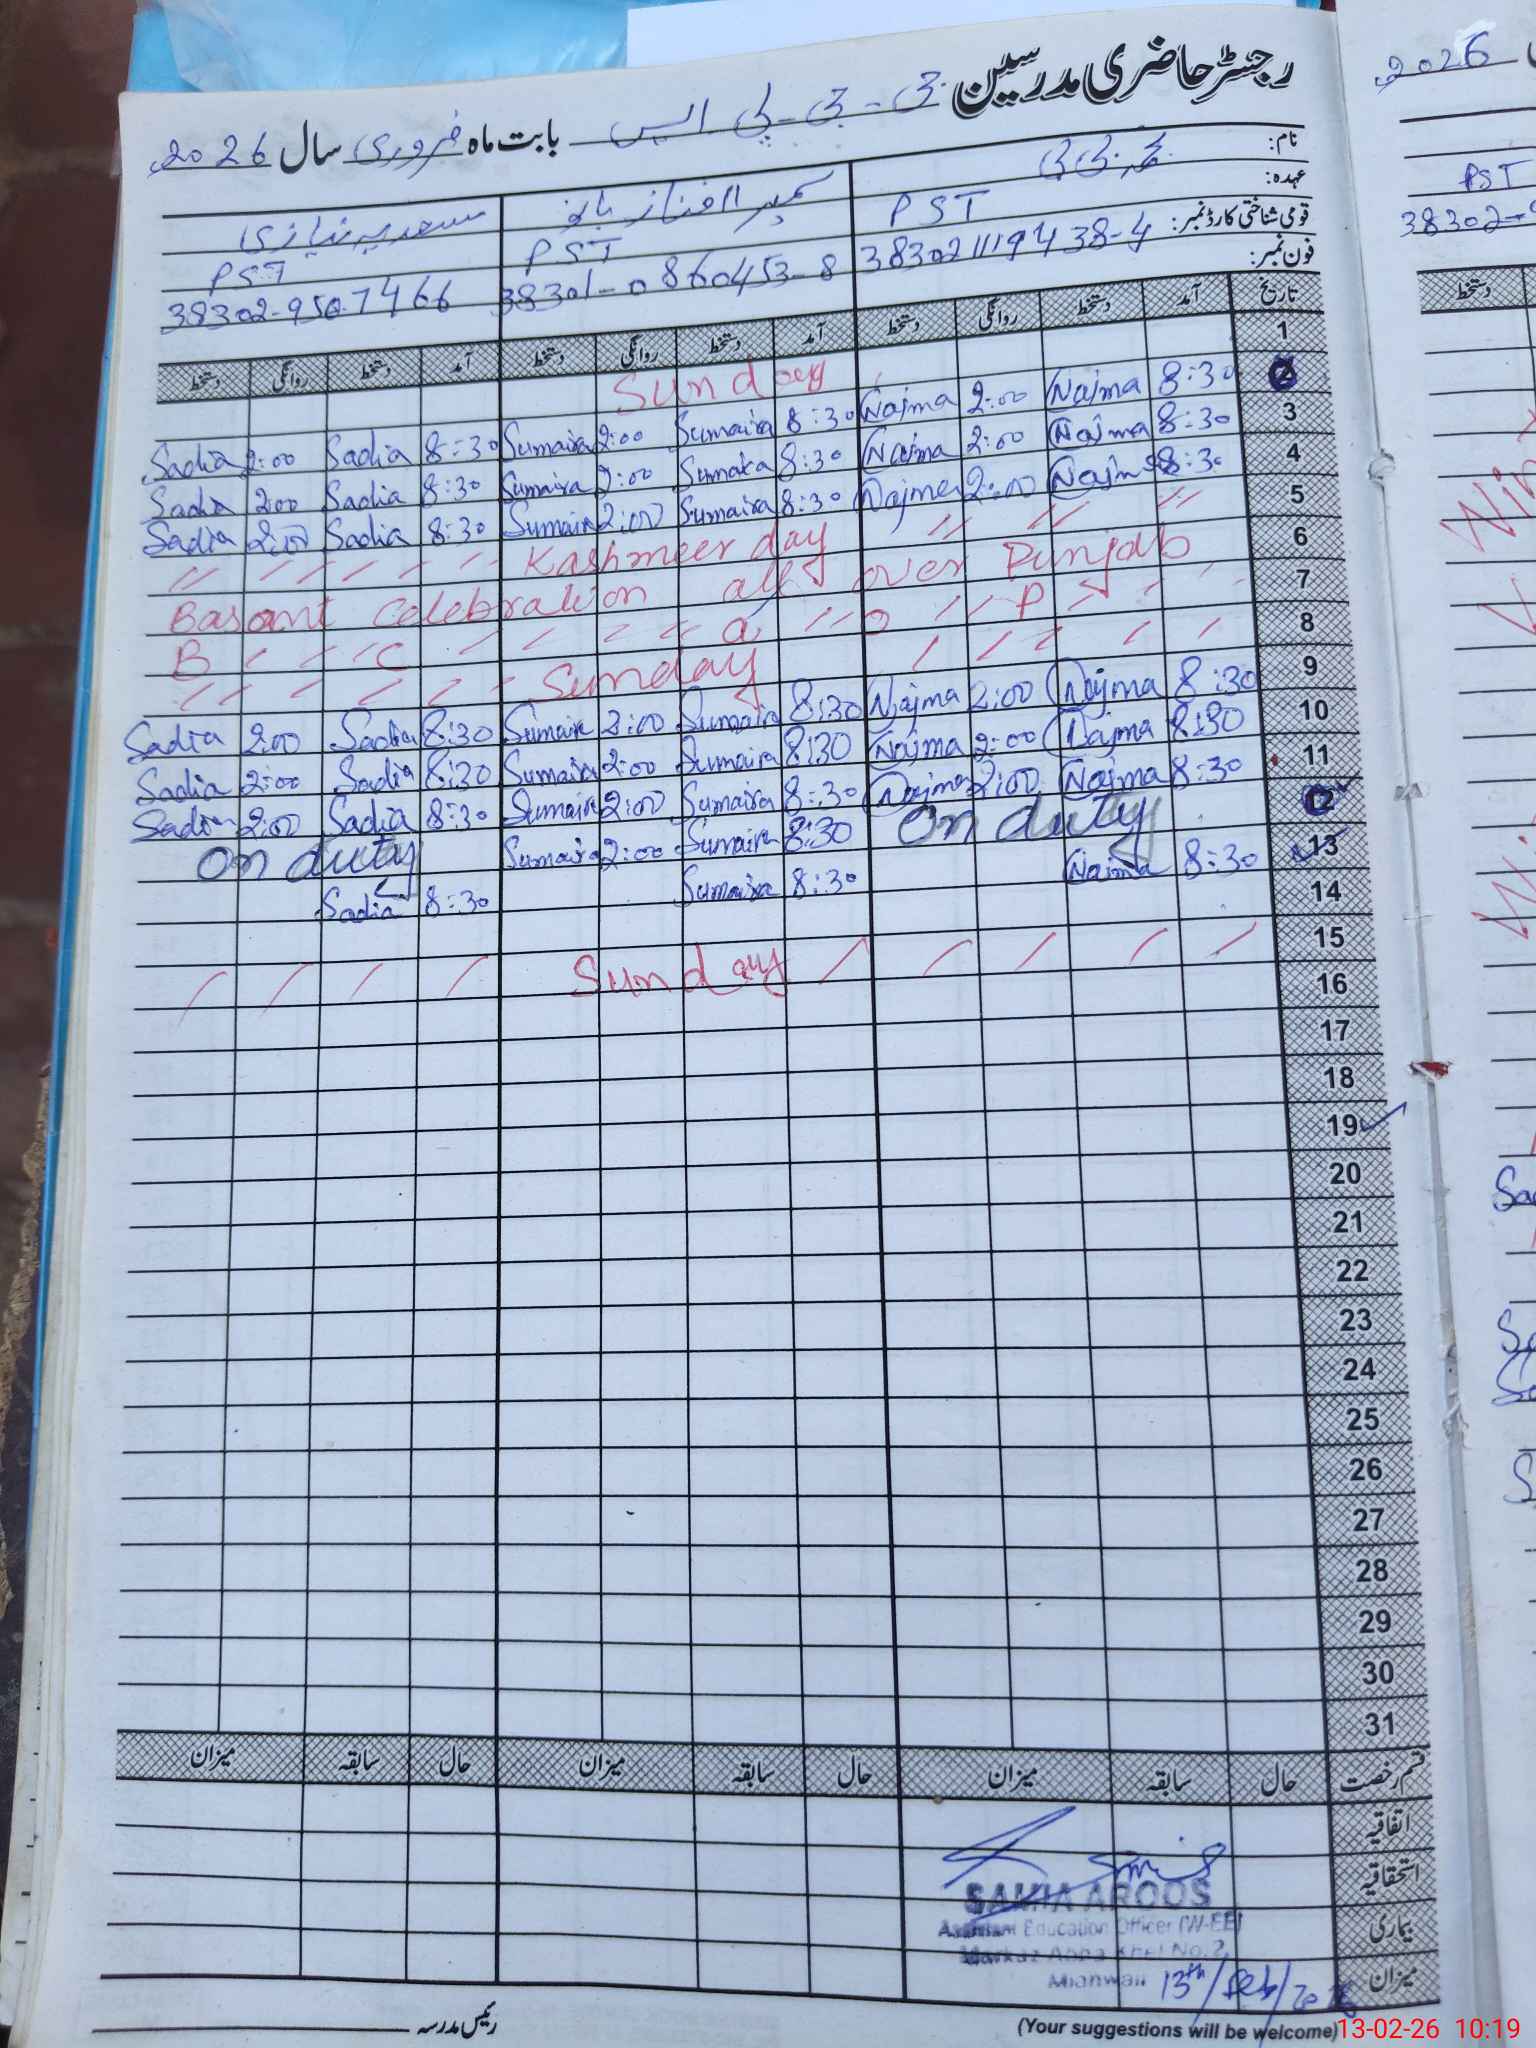 رجسٹر حاضری مدرسین جی - جی - پی ایس بابت ماہ فروری سال 2026
نام: نجمہ بی بی سمیرا افناز بانو سعدیہ نیازی
عہدہ: PST PST PST
قومی شناختی کارڈ نمبر: 38302-9507466 38301-0860453-8
فون نمبر:
تاریخ آمد دستخط روانگی دستخط آمد دستخط روانگی دستخط آمد دستخط روانگی دستخط
1 Sunday
2 8:30 Najma 2:00 Najma 8:30 Sumaira 2:00 Sumaira 8:30 Sadia 2:00 Sadia
3 8:30 Najma 2:00 Najma 8:30 Sumaira 2:00 Sumaira 8:30 Sadia 2:00 Sadia
4 8:30 Najma 2:00 Najma 8:30 Sumaira 2:00 Sumaira 8:30 Sadia 2:00 Sadia
5 〃 〃 〃 Kashmeer day 〃 〃 〃 〃
6 Basant Celebration all over Punjab
7 B 〃 〃 C 〃 〃 〃 〃 a 〃 o 〃 P 〃 〃
8 〃 〃 〃 〃 Sunday 〃 〃 〃 〃
9 8:30 Najma 2:00 Najma 8:30 Sumaira 2:00 Sumaira 8:30 Sadia 2:00 Sadia
10 8:30 Najma 2:00 Najma 8:30 Sumaira 2:00 Sumaira 8:30 Sadia 2:00 Sadia
11 8:30 Najma 2:00 Najma 8:30 Sumaira 2:00 Sumaira 8:30 Sadia 2:00 Sadia
12 On duty 8:30 Sumaira 2:00 Sumaira On duty
13 8:30 Najma 8:30 Sumaira 8:30 Sadia
14
15 Sunday
16
17
18
19
20
21
22
23
24
25
26
27
28
29
30
31
قسم رخصت حال سابقہ میزان حال سابقہ میزان حال سابقہ میزان
اتفاقیہ
استحقاقیہ
بیماری
میزان
SAMIA AROOS
Assistant Education Officer (W-EE)
Markaz Abba Khel No.2,
Mianwali 13th/Feb/2026
رئیس مدرسہ
(Your suggestions will be welcome)
13-02-26 10:19
2026
PST
38302-9
دستخط